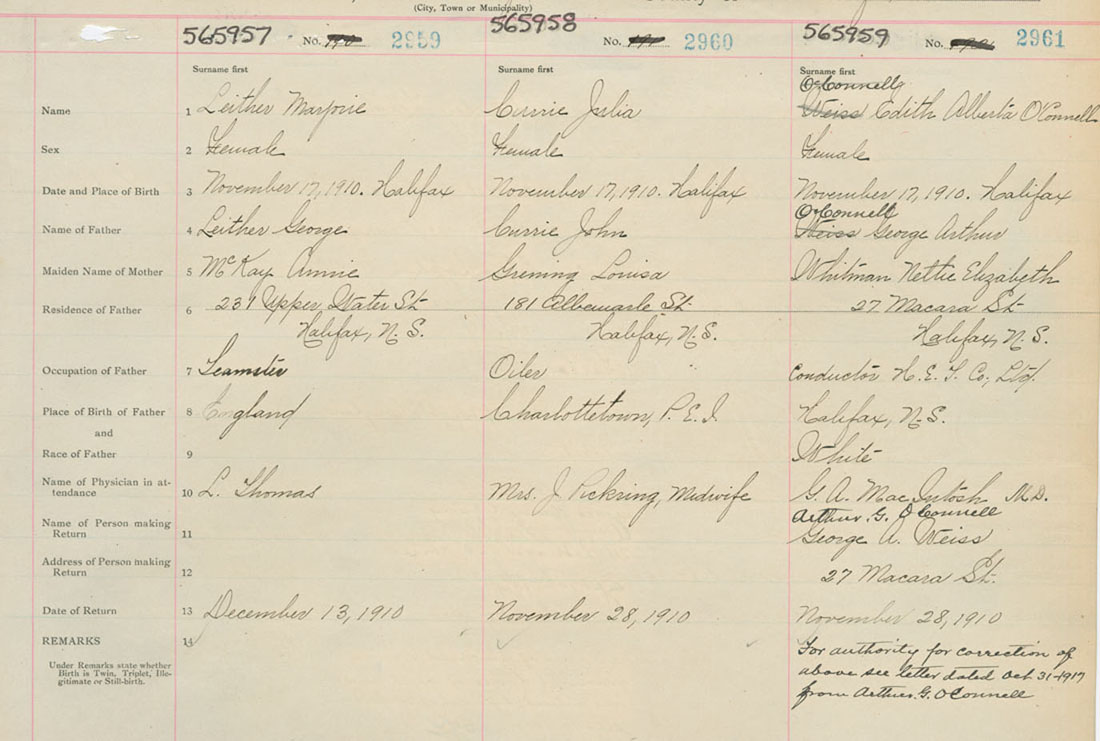 (City, Town or Municipality)
565957 No. 2959 565958 No. 2960 565959 No. 2961
Surname first Surname first Surname first
O'Connell
Name 1 Leither Marjorie Currie Julia Weiss Edith Alberta O'Connell
Sex 2 Female Female Female
Date and Place of Birth 3 November 17, 1910. Halifax November 17, 1910. Halifax November 17, 1910. Halifax
O'Connell
Name of Father 4 Leither George Currie John Weiss George Arthur
Maiden Name of Mother 5 McKay Annie Greming Louisa Whitman Nettie Elizabeth
Residence of Father 6 237 Upper Water St. 181 Albemarle St. 27 Macara St.
Halifax, N.S. Halifax, N.S. Halifax, N.S.
Occupation of Father 7 Teamster Oiler Conductor H. E. T. Co; Ltd.
Place of Birth of Father 8 England Charlottetown, P.E.I. Halifax, N.S.
and
Race of Father 9 White
Name of Physician in at-
tendance 10 L. Thomas Mrs. J Pickring, Midwife G. A. MacIntosh M.D.
Arthur. G. O'Connell
Name of Person making
Return 11 George A. Weiss
Address of Person making
Return 12 27 Macara St.
Date of Return 13 December 13, 1910 November 28, 1910 November 28, 1910
REMARKS 14 For authority for correction of
above see letter dated Oct 31-1917
from Arthur. G. O'Connell
Under Remarks state whether
Birth is Twin, Triplet, Ille-
gitimate or Still-birth.